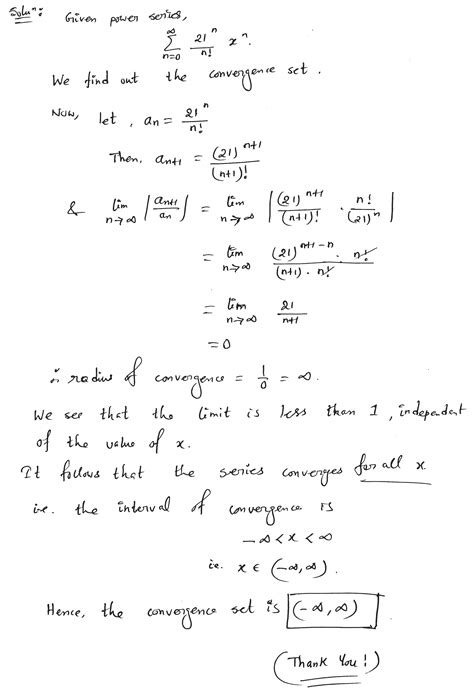 Soluⁿ: Given power series,
∑_{n=0}^{∞} 21^n/n! x^n.
We find out the convergence set.
Now, let, an = 21^n/n!
Then, an+1 = (21)^{n+1}/(n+1)!
& lim_{n→∞} |an+1/an| = lim_{n→∞} |(21)^{n+1}/(n+1)! · n!/(21)^n|
= lim_{n→∞} (21)^{n+1-n} · n!/(n+1) · n!
= lim_{n→∞} 21/n+1
= 0
∴ radius of convergence = 1/0 = ∞.
We see that the limit is less than 1, independent
of the value of x.
It follows that the series converges for all x
i.e. the interval of convergence is
-∞ < x < ∞
i.e. x ∈ (-∞, ∞).
Hence, the convergence set is (-∞, ∞)
(Thank You!)